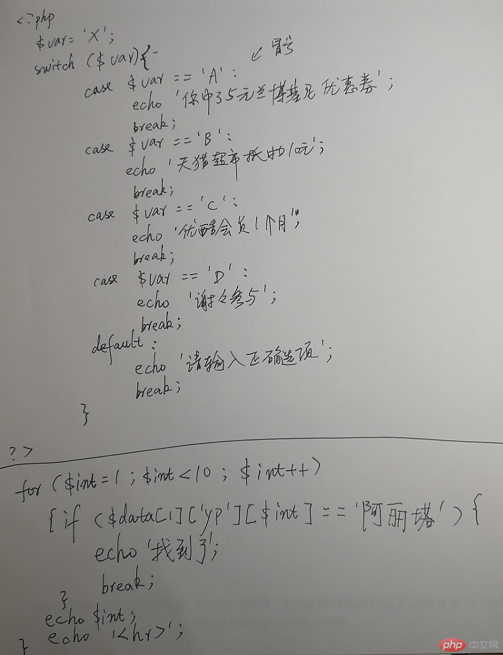 <?php
$var = 'X';
switch ($var){
冒号
case $var == 'A' :
echo '你中了5元兰博基尼优惠券';
break;
case $var == 'B' :
echo '天猫超市抵扣10元';
break;
case $var == 'C' :
echo '优酷会员1个月';
break;
case $var == 'D' :
echo '谢谢参与';
break;
default :
echo '请输入正确选项';
break;
}
?>
for ($int=1 ; $int<10 ; $int++)
{ if ($data[1]['yp'][$int] == '阿丽塔') {
echo '找到了';
break;
}
echo $int;
echo '<hr>';
}
php 中文网